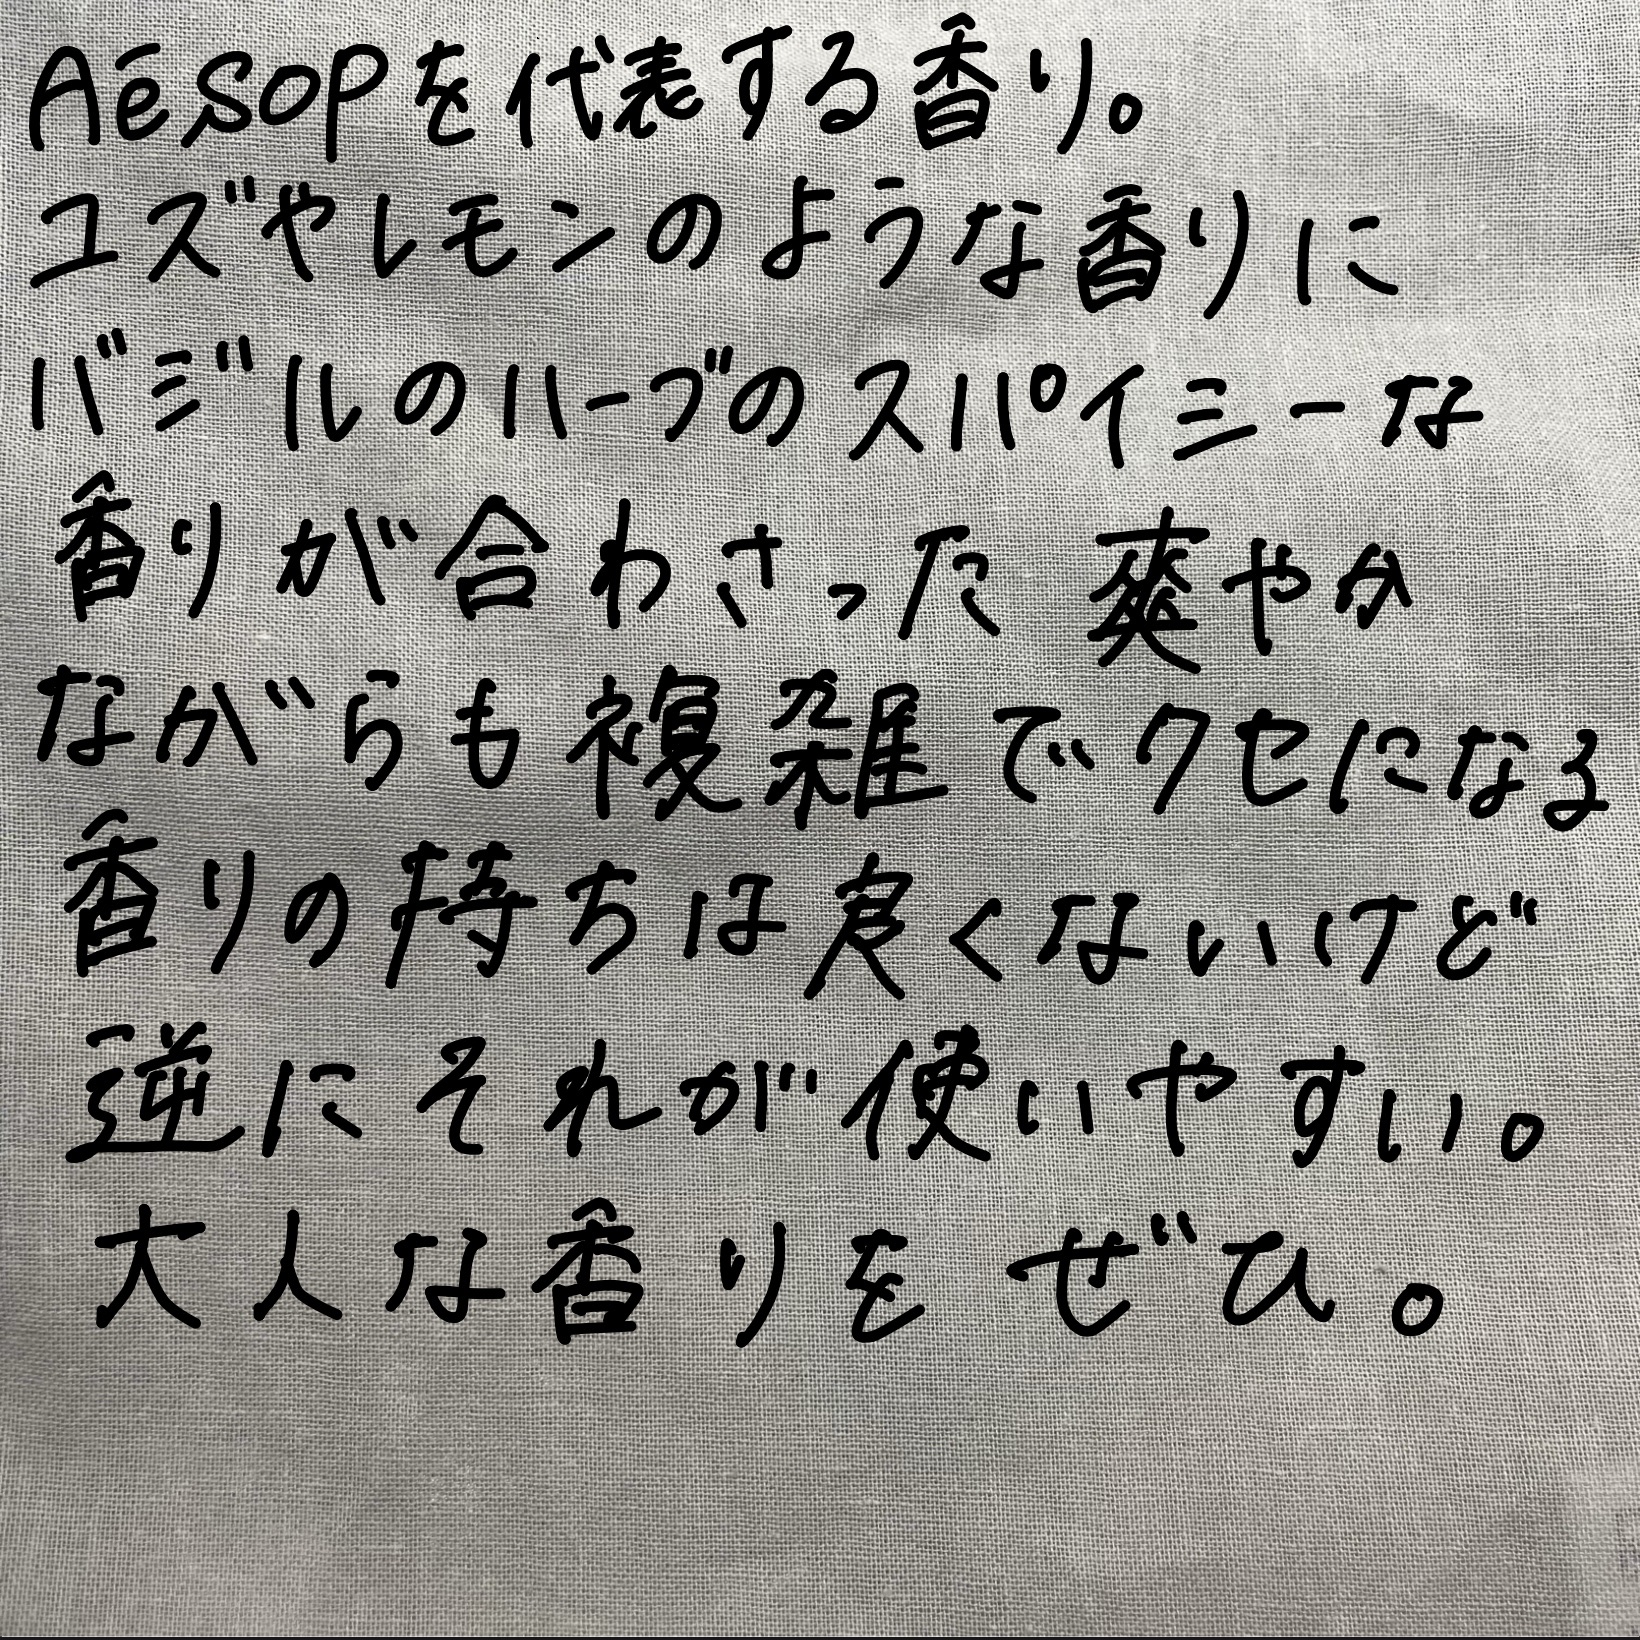 Aēsopを代表する香り。
ユズやレモンのような香りに
バジルのハーブのスパイシーな
香りが合わさった爽やか
ながらも複雑でクセになる
香りの持ちは良くないけど
逆にそれが使いやすい。
大人な香りをぜひ。